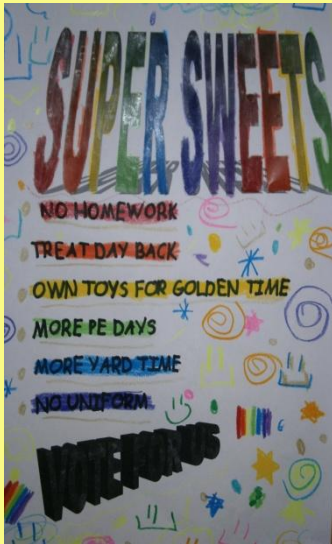 SUPER SWEETS
NO HOMEWORK
TREAT DAY BACK
OWN TOYS FOR GOLDEN TIME
MORE PE DAYS
MORE YARD TIME
NO UNIFORM
VOTE FOR US